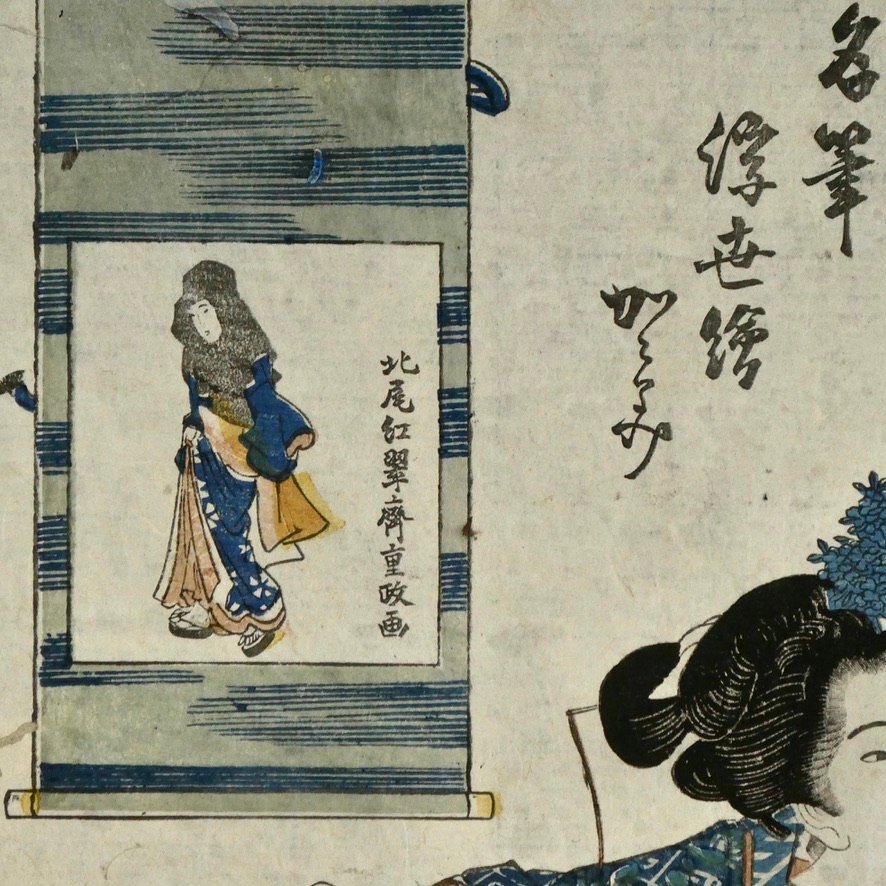 名筆
浮世繪
かゞみ
北尾紅翠齋重政画